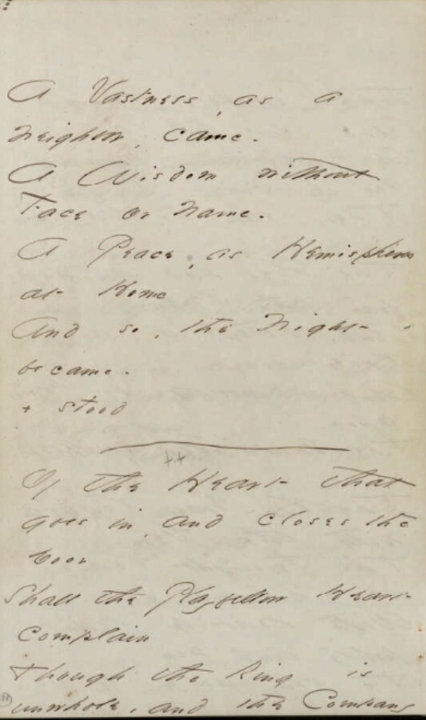 A Vastness, as a
Neighbor, came.
A Wisdom without
Face or Name.
A Peace, as Hemispheres
at Home
And so, the Night
became.
+ stood
++
Of the Heart that
goes in, and closes the
Door
Shall the Playfellow Heart
Complain
Though the Ring is
unwhole, and the Company